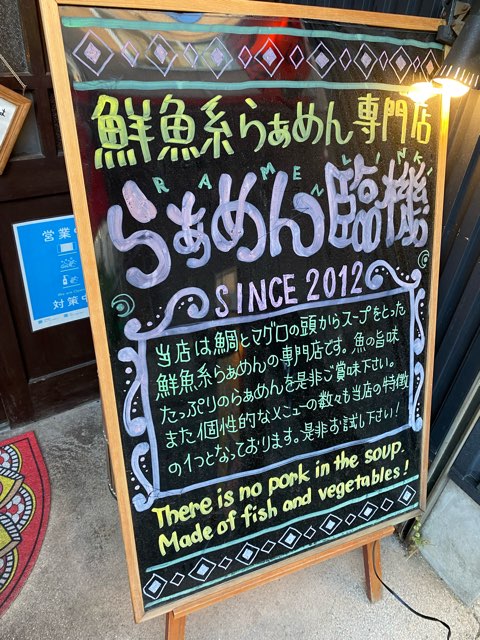 鮮魚系らぁめん専門店
RAMEN LINKI
らぁめん臨機
SINCE 2012
当店は鯛とマグロの頭からスープをとった
鮮魚系らぁめんの専門店です。魚の旨味
たっぷりのらぁめんを是非ご賞味下さい。
また個性的なメニューの数々も当店の特徴
の1つとなっております。是非お試し下さい！
There is no pork in the soup.
Made of fish and vegetables!
営業
対策